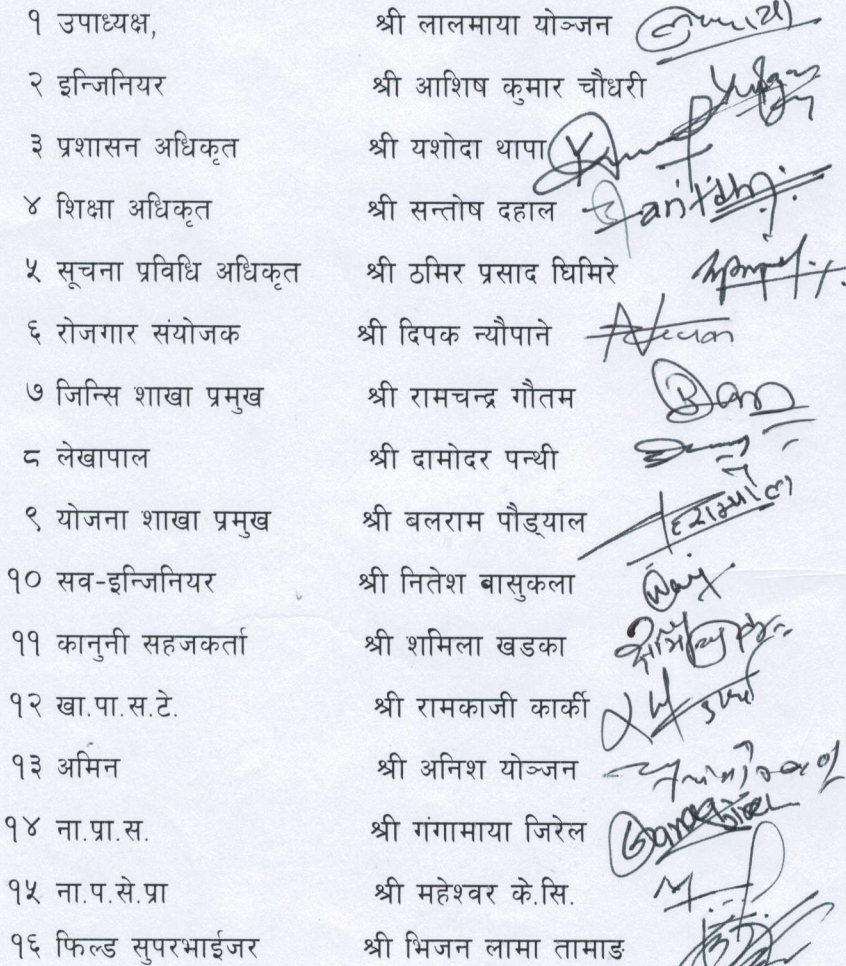 १ उपाध्यक्ष, श्री लालमाया योञ्जन
२ इन्जिनियर श्री आशिष कुमार चौधरी
३ प्रशासन अधिकृत श्री यशोदा थापा
४ शिक्षा अधिकृत श्री सन्तोष दहाल
५ सूचना प्रविधि अधिकृत श्री ठमिर प्रसाद घिमिरे
६ रोजगार संयोजक श्री दिपक न्यौपाने
७ जिन्सि शाखा प्रमुख श्री रामचन्द्र गौतम
८ लेखापाल श्री दामोदर पन्थी
९ योजना शाखा प्रमुख श्री बलराम पौड्याल
१० सव-इन्जिनियर श्री नितेश बासुकला
११ कानुनी सहजकर्ता श्री शमिला खडका
१२ खा.पा.स.टे. श्री रामकाजी कार्की
१३ अमिन श्री अनिश योञ्जन
१४ ना.प्रा.स. श्री गंगामाया जिरेल
१५ ना.प.से.प्रा श्री महेश्वर के.सि.
१६ फिल्ड सुपरभाईजर श्री भिजन लामा तामाङ